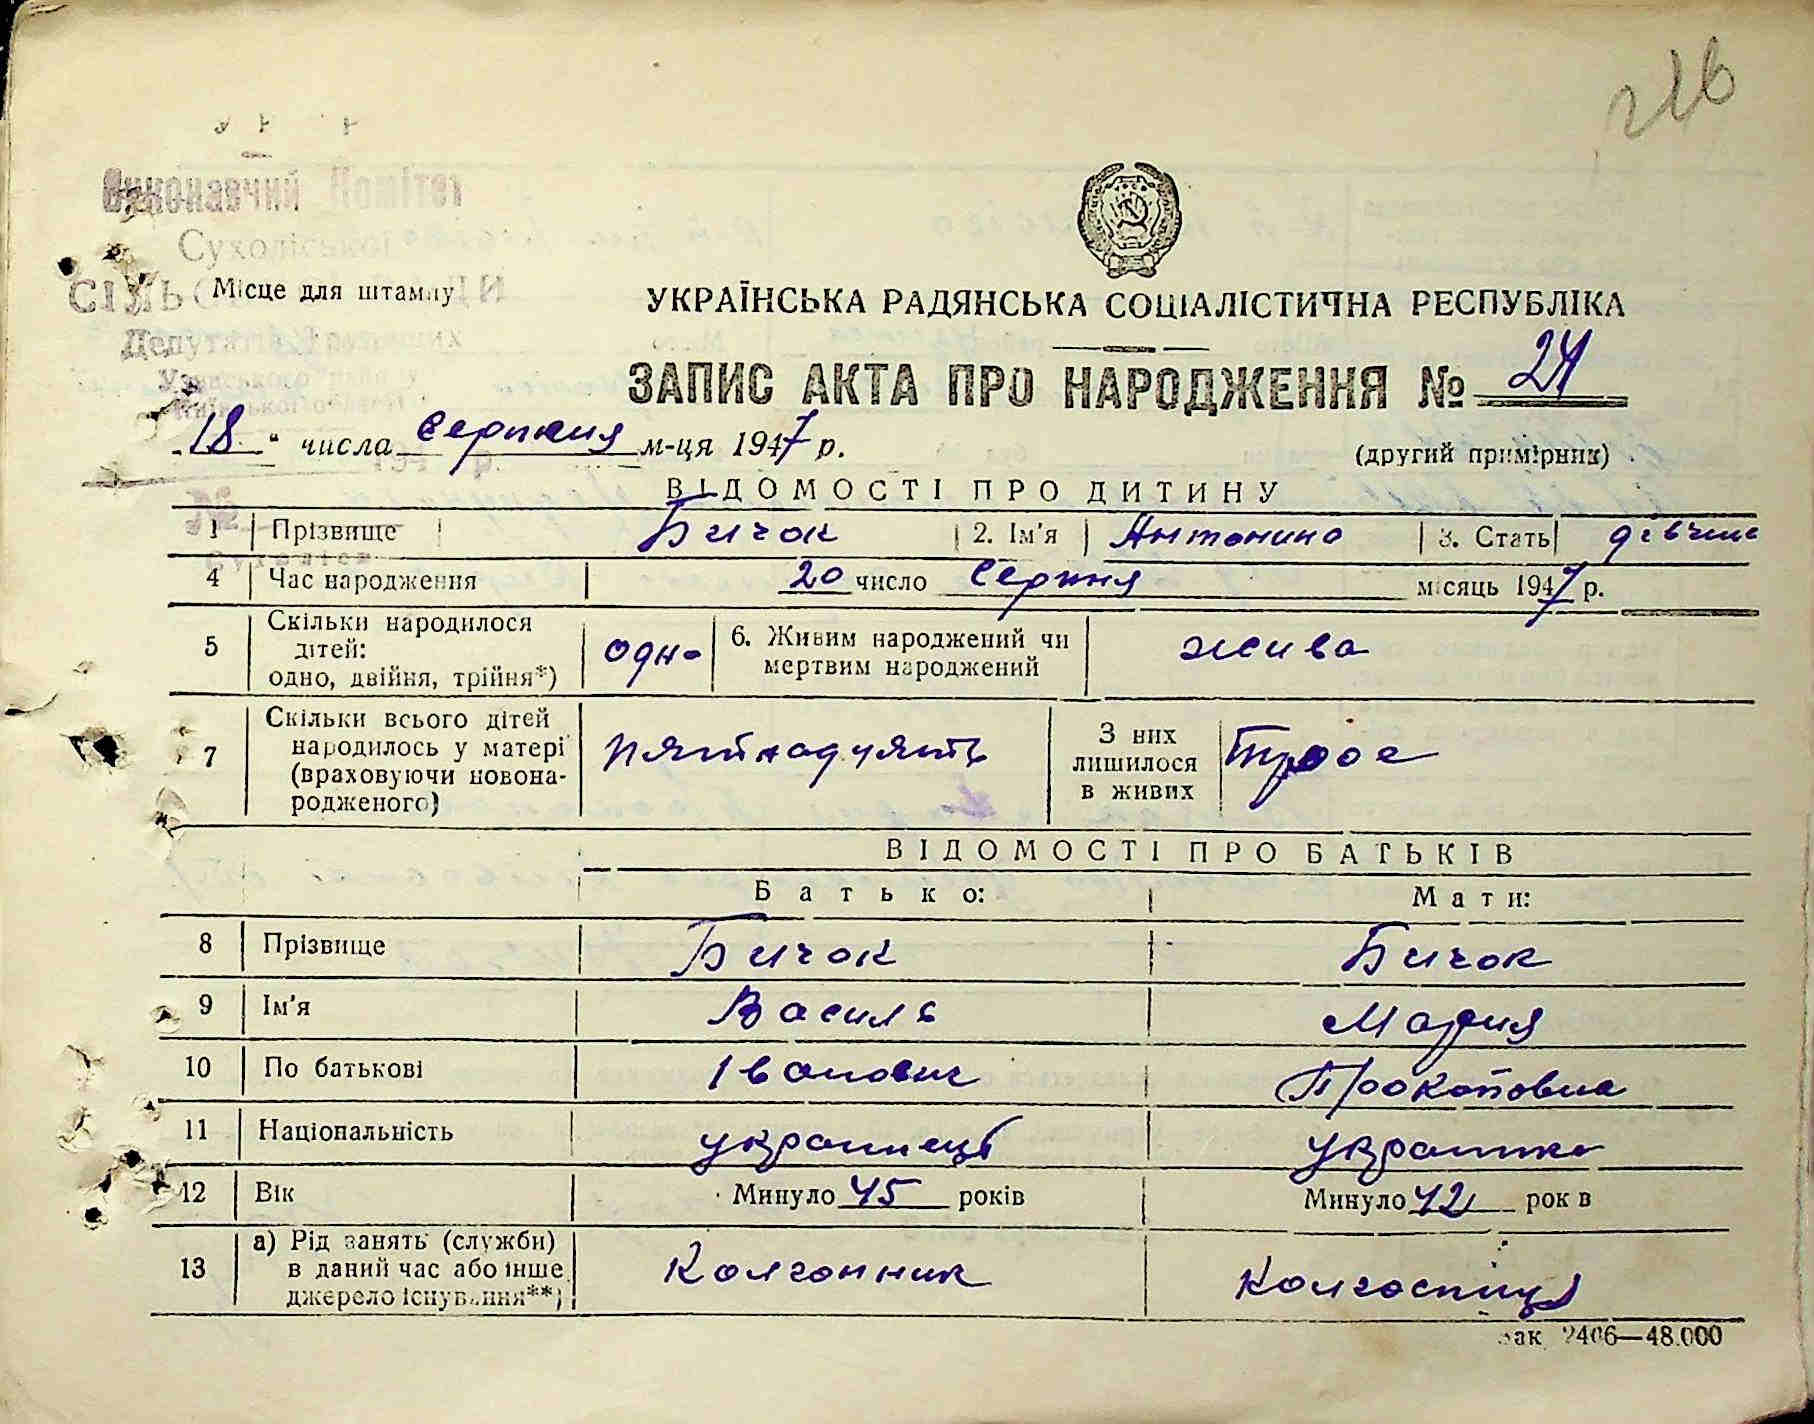 216
Виконавчий Комітет
Суходіської
Місце для штампу
Депутатів Трудящих
УКРАЇНСЬКА РАДЯНСЬКА СОЦІАЛІСТИЧНА РЕСПУБЛІКА
ЗАПИС АКТА ПРО НАРОДЖЕННЯ № 24
„18“ числа серпня м-ця 1947 р.
(другий примірник)
ВІДОМОСТІ ПРО ДИТИНУ
1 Прізвище Бичок 2. Ім'я Антонина 3. Стать дівчина
4 Час народження 20 число серпня місяць 1947 р.
5 Скільки народилося дітей: одно, двійня, трійня*) одно 6. Живим народжений чи мертвим народжений жива
7 Скільки всього дітей народилось у матері (враховуючи новонародженого) пятнадцять З них лишилося в живих Троое
ВІДОМОСТІ ПРО БАТЬКІВ
Батько: Мати:
8 Прізвище Бичок Бичок
9 Ім'я Василь Мария
10 По батькові Іванович Прокоповна
11 Національність українець українка
12 Вік Минуло 45 років Минуло 42 років
13 а) Рід занять (служби) в даний час або інше джерело існування**) Колгопник колгоспиця
Зак. 2406—48.000